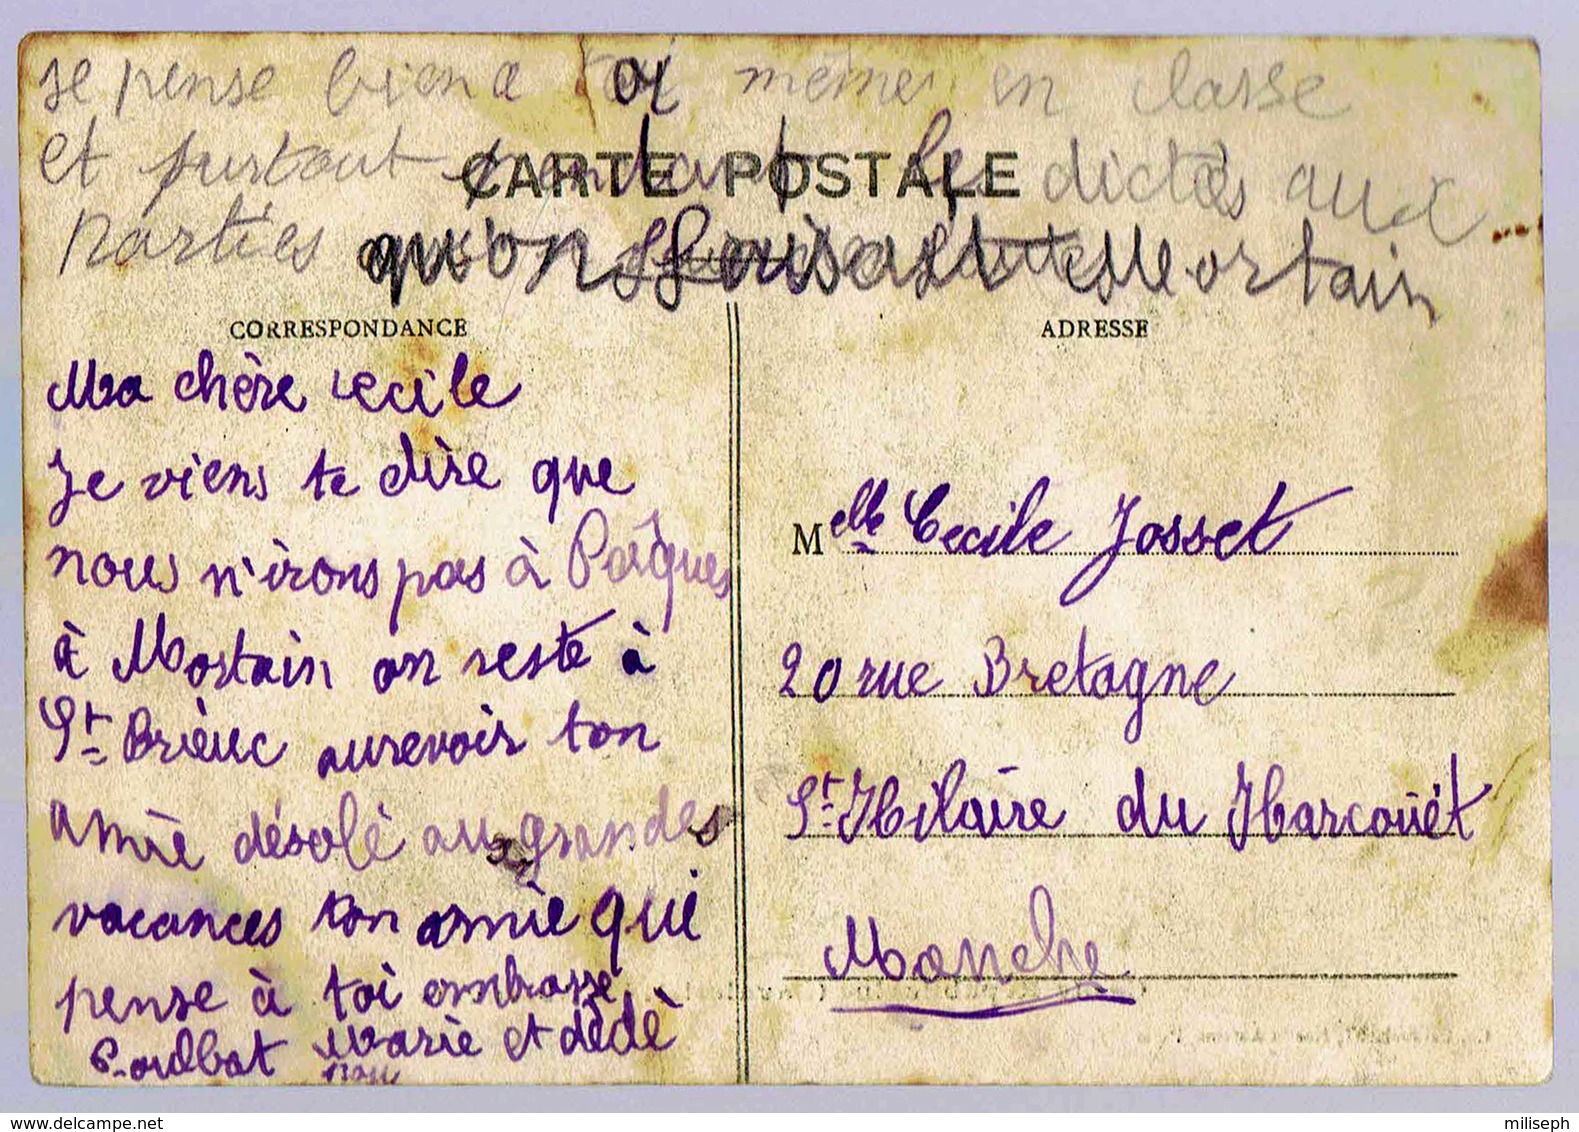 je pense bien a toi même en classe
et surtout pendant les dictés aux
parties qu'on faisait Mortain
CARTE POSTALE
CORRESPONDANCE
Ma chère Cecile
Je viens te dire que
nous n'irons pas à Pâques
à Mortain on reste à
St Brieuc aurevoir ton
amie désolé aux grandes
vacances ton amie qui
pense à toi embrasse
Marie et dédé
ADRESSE
Melle Cecile Josset
20 rue Bretagne
St Hilaire du Harcouët
Manche
miliseph